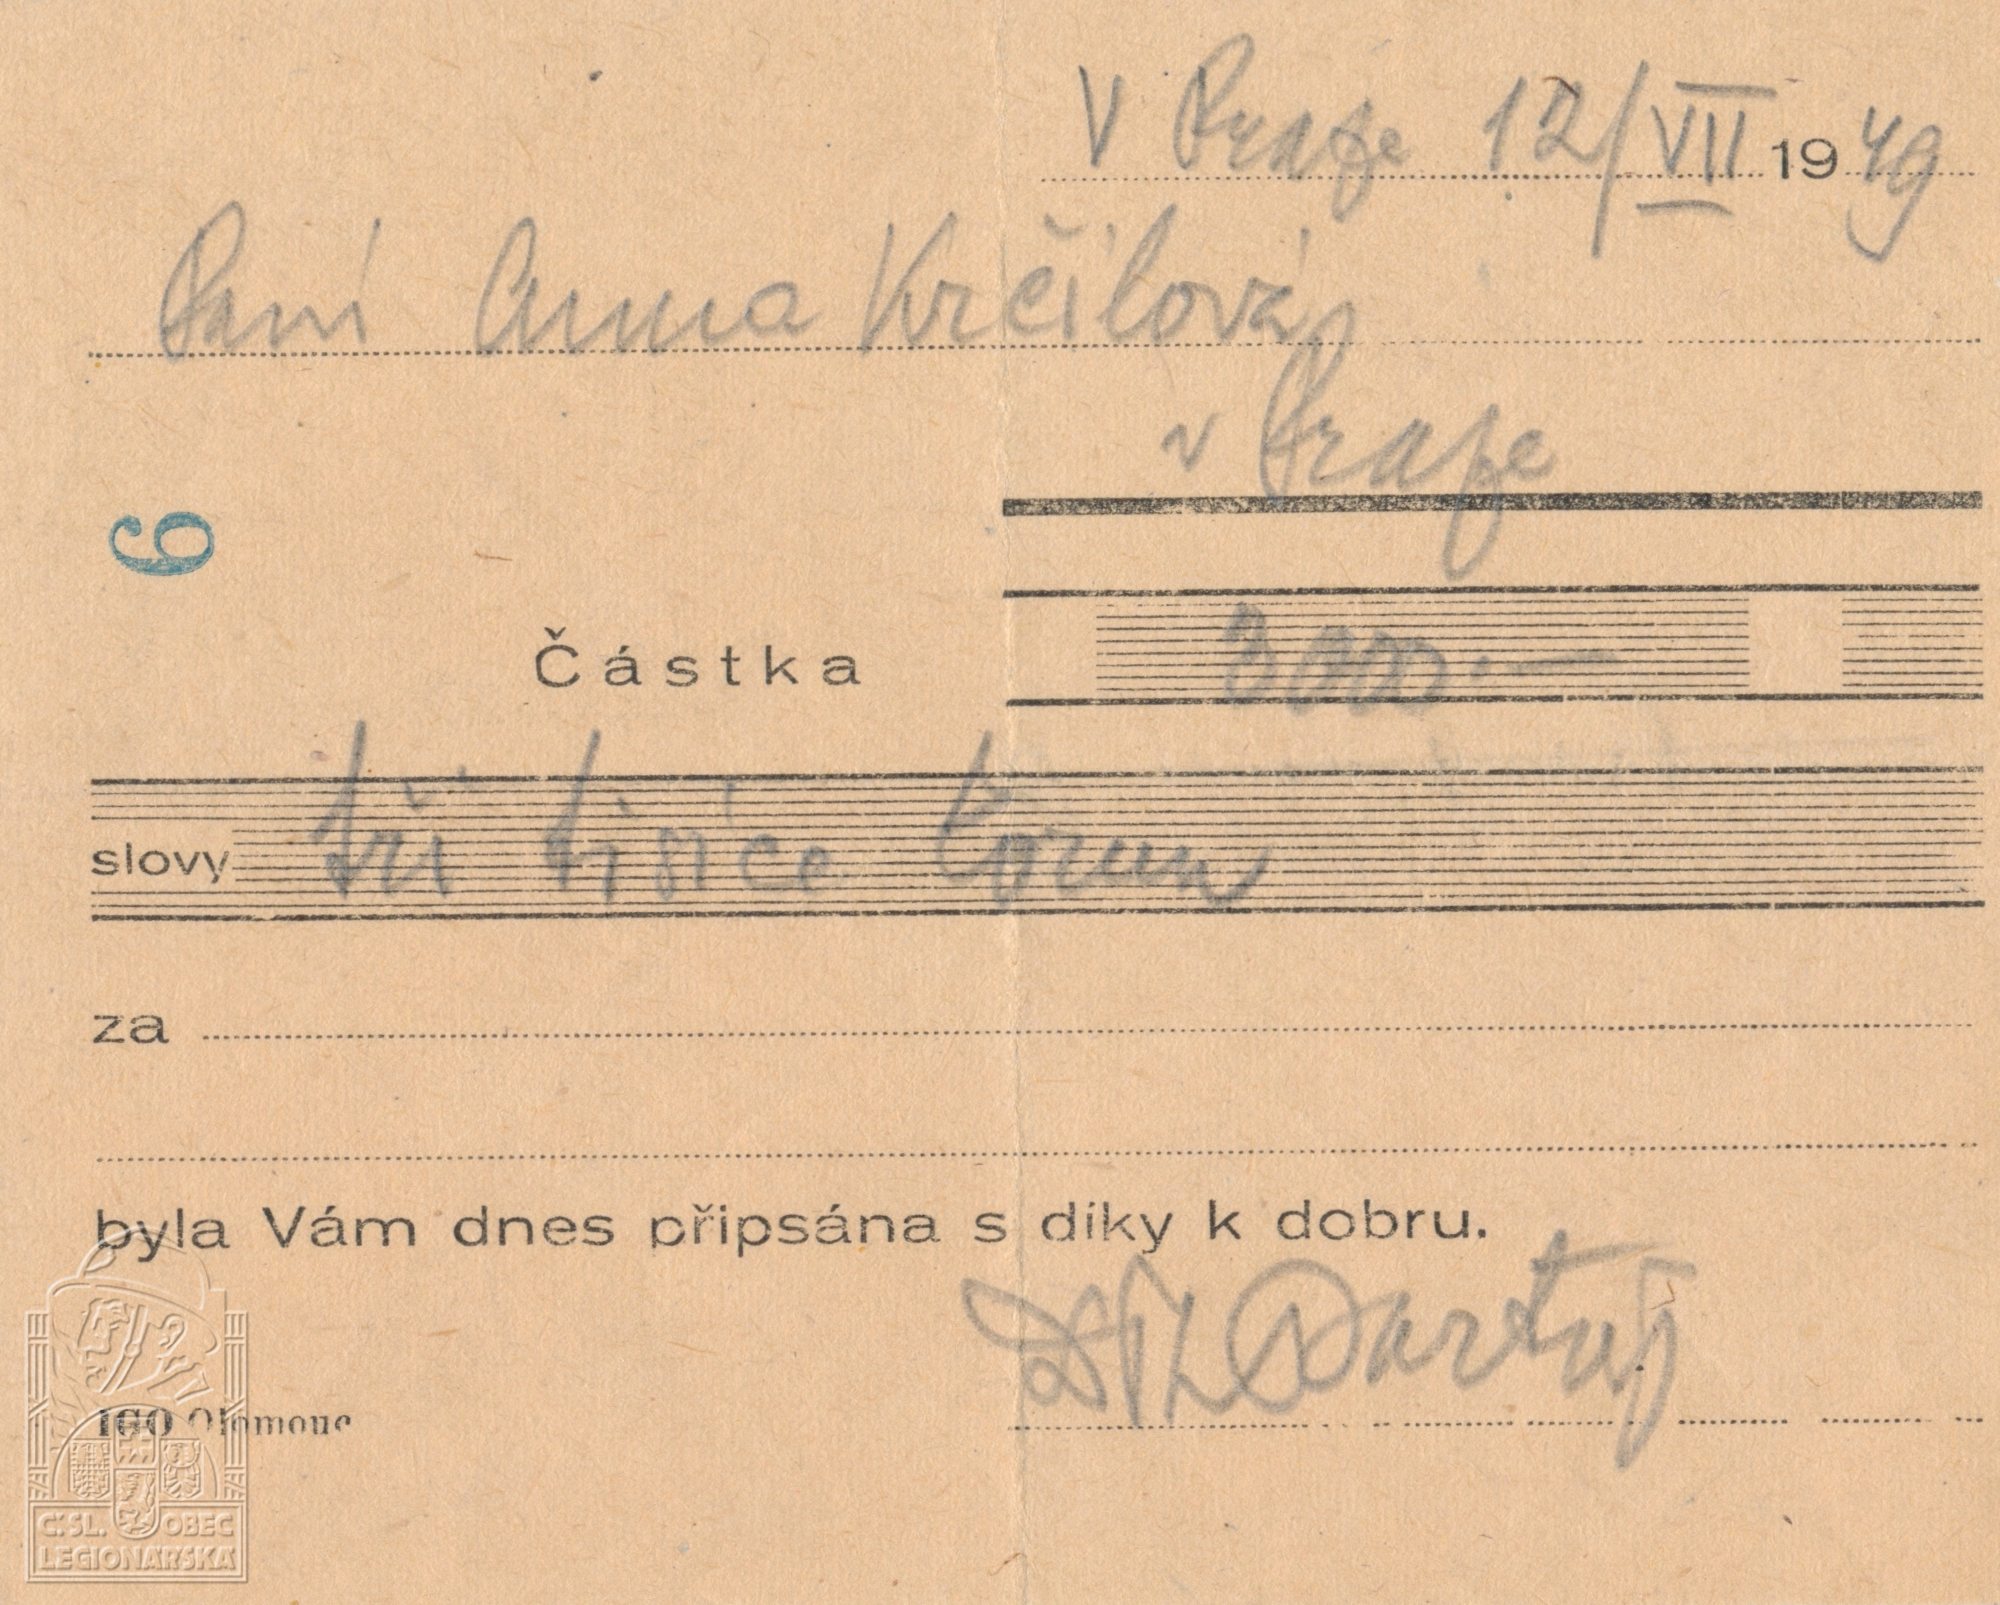 V Praze 12/VII 1949
Paní Anna Krčílová
v Praze
6
Částka 3000.—
slovy tři tisíce korun
za
byla Vám dnes připsána s díky k dobru.
IGO Olomouc
Č.SL. OBEC
LEGIONÁŘSKÁ